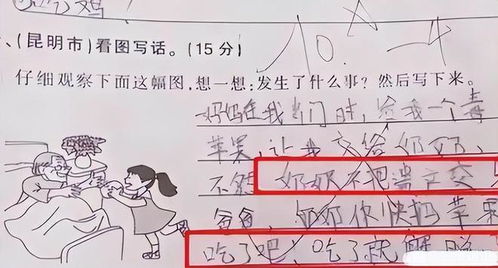 吃鸡
10. -4
、(昆明市)看图写话。(15分)
仔细观察下面这幅图,想一想:发生了什么事?然后写下来。
妈妈在我出门时,给我一个毒
苹果,让我交给奶奶,
不然奶奶不把遗产交
爸爸,奶奶你快把苹果
吃了吧!吃了就解脱